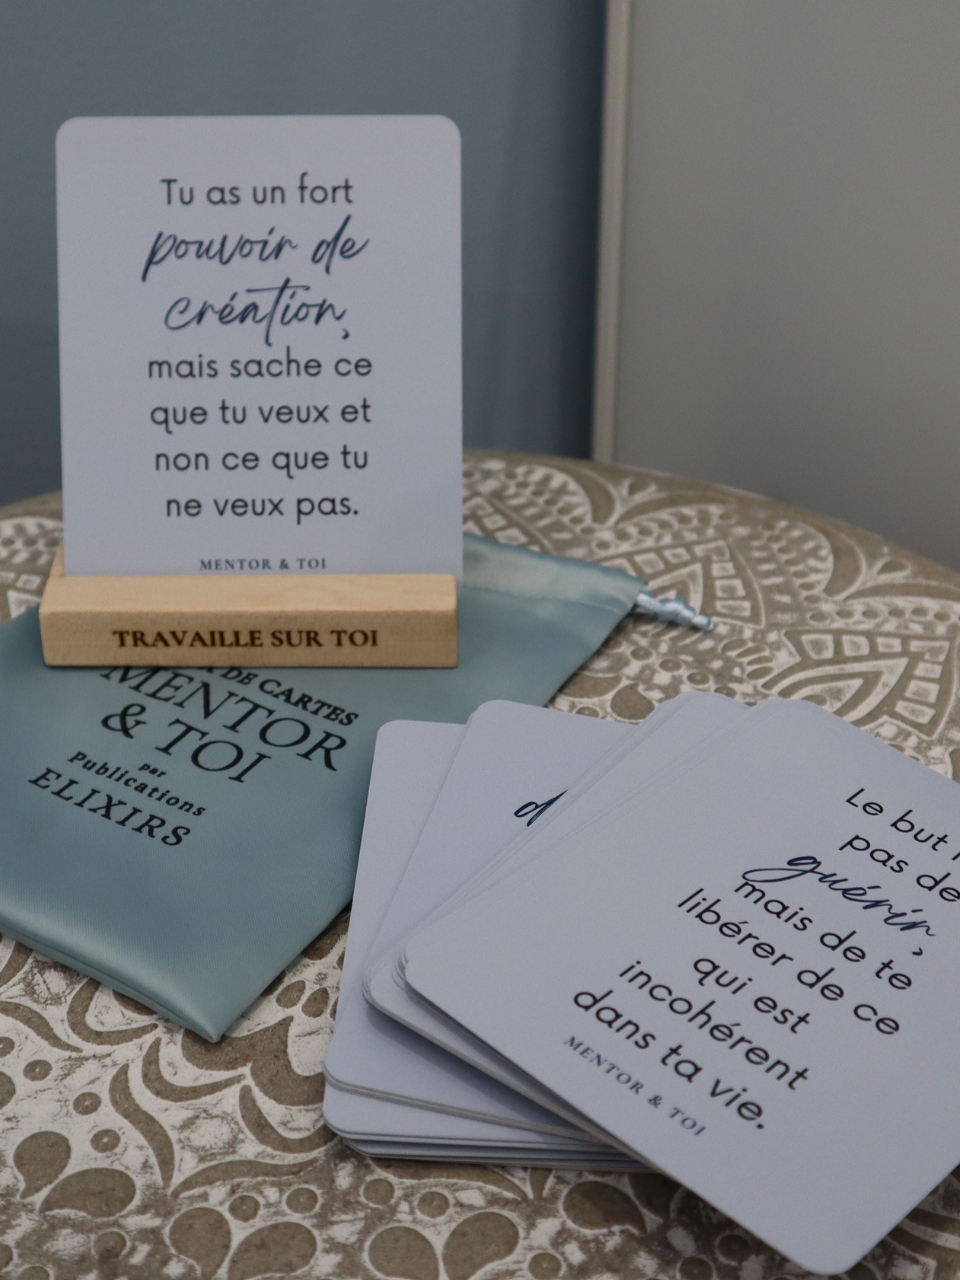 Tu as un fort
pouvoir de
création,
mais sache ce
que tu veux et
non ce que tu
ne veux pas.
MENTOR & TOI
TRAVAILLE SUR TOI
DE CARTES
MENTOR
& TOI
par
Publications
ELIXIRS
Le but
pas de
guérir,
mais de te
libérer de ce
qui est
incohérent
dans ta vie.
MENTOR & TOI